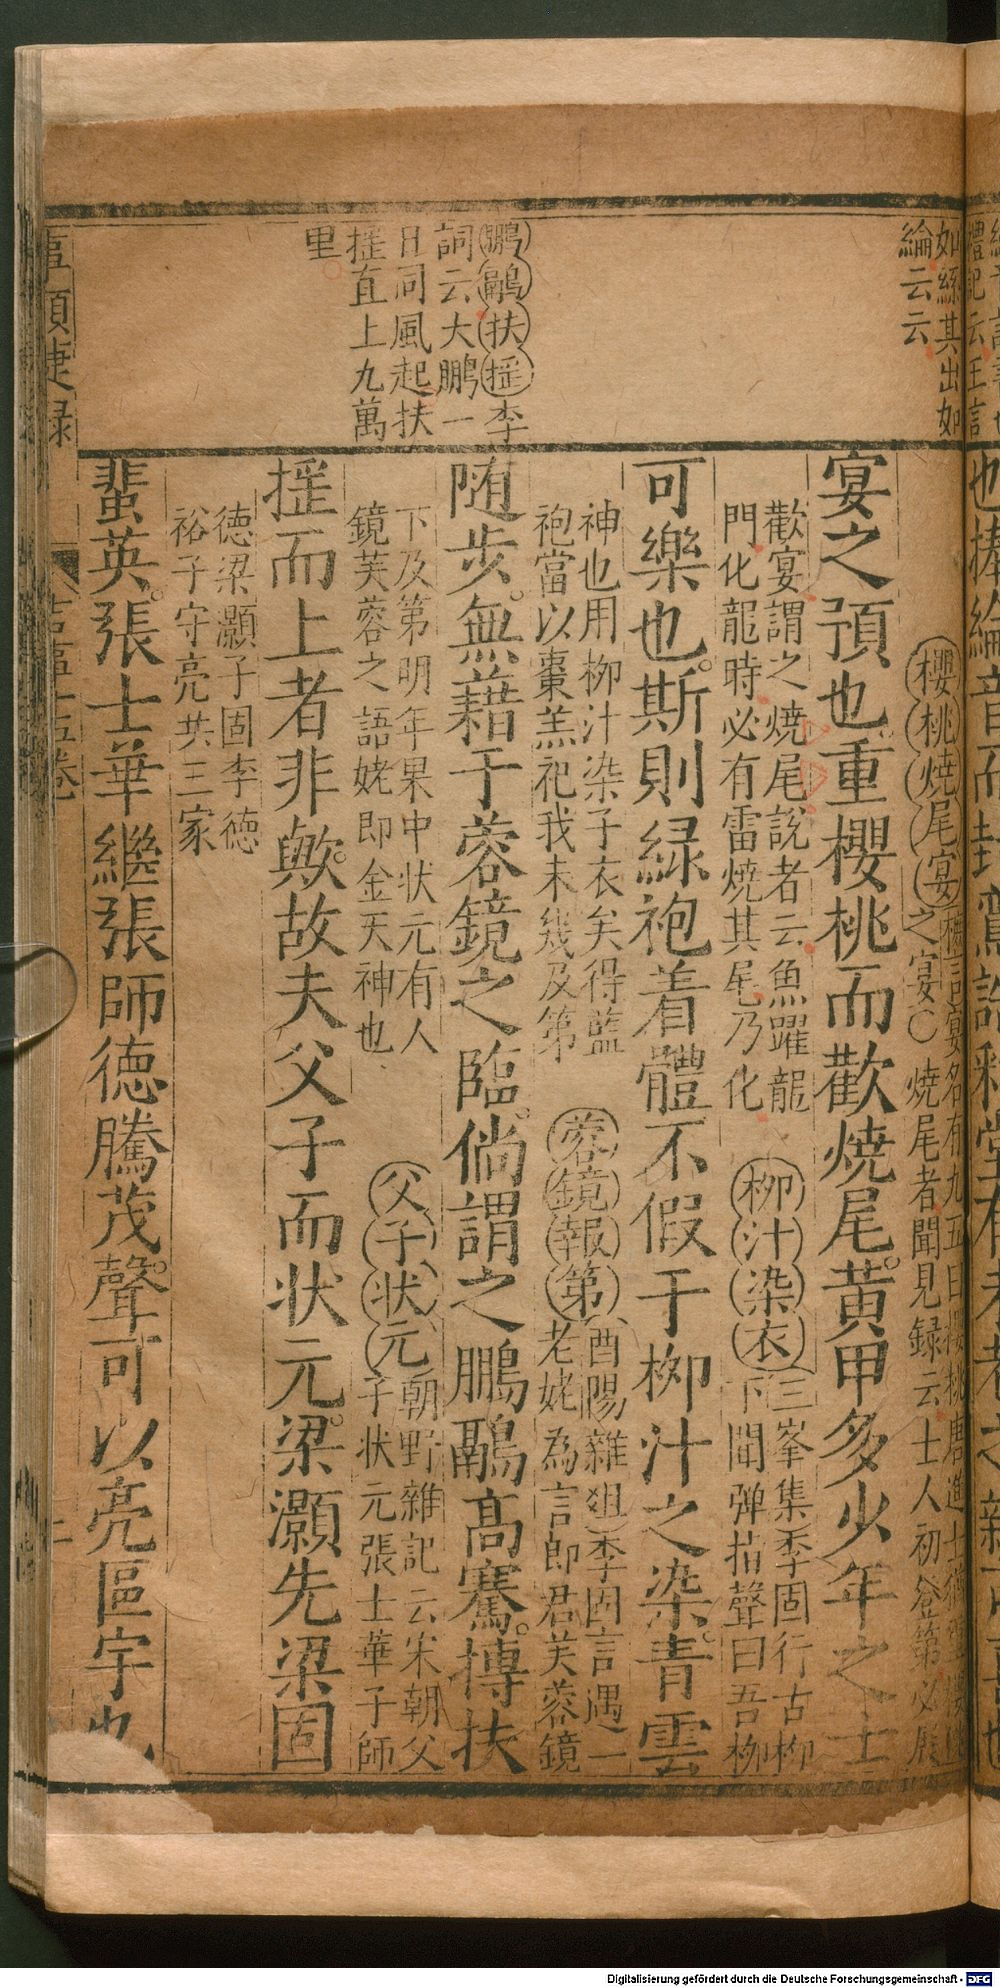 如絲其出如
綸云云
鵬鶚扶揺李
詞云大鵬一
日同風起扶
揺直上九萬
里
櫻桃燒尾宴
之宴〇燒尾者聞見録云士人初登第必展
宴之預也重櫻桃而歡燒尾黄甲多少年之士
歡宴謂之燒尾說者云魚躍龍
門化龍時必有雷燒其尾乃化
柳汁染衣三峯集李固行古柳
下聞弹指聲曰吾柳
可樂也斯則緑袍着體不假于柳汁之染青雲
神也用柳汁染子衣矣得藍
袍當以棗羔祀我未幾及第
蓉鏡報第酉陽雜俎李固言遇一
老姥為言郎君芙蓉鏡
随步無藉于蓉鏡之臨倘謂之鵬鶚髙騫摶扶
下及第明年果中状元有人
鏡芙蓉之語姥即金天神也
父子状元朝野雜記云宋朝父
子状元張士華子師
揺而上者非歟故夫父子而状元梁灝先梁固
徳梁灝子固李徳
裕子守亮共三家
蜚英張士華繼張師徳騰茂聲可以亮區宇也
事類捷録
十五卷
Digitalisierung gefördert durch die Deutsche Forschungsgemeinschaft - DFG